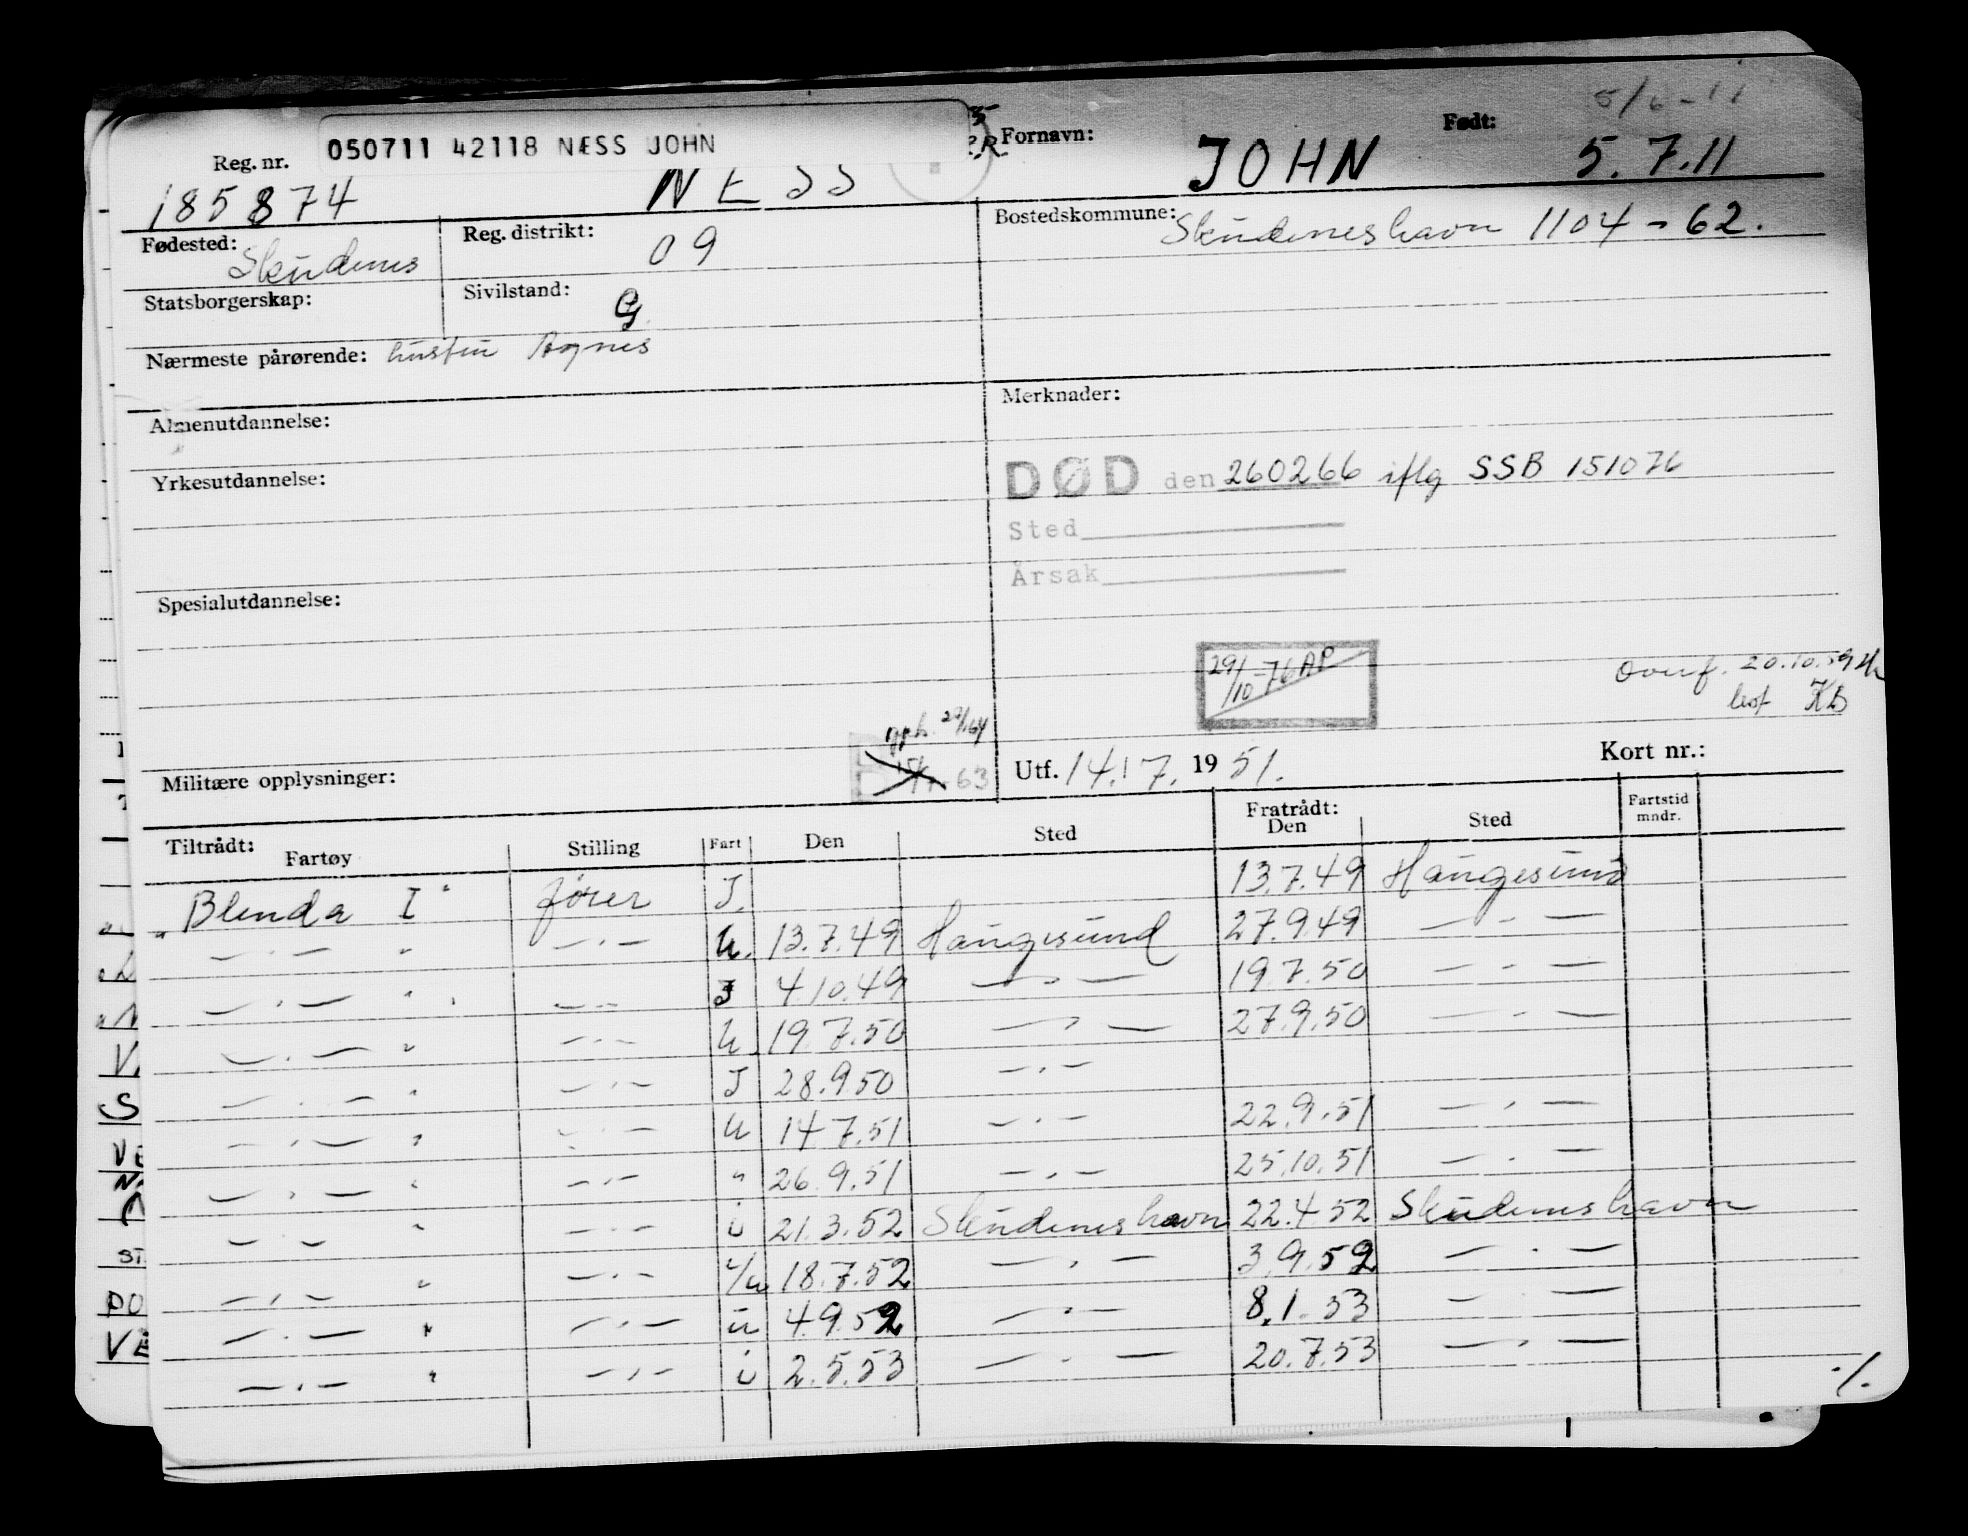 5/6-11
050711 42118 NÆSS JOHN
Reg. nr. Fornavn: Født:
185874 NESS JOHN 5.7.11
Fødested: Skudenes Reg. distrikt: 09 Bostedskommune: Skudeneshavn 1104-62.
Statsborgerskap: Sivilstand: G
Nærmeste pårørende: hustru Agnes
Almenutdannelse: Merknader:
Yrkesutdannelse: DØD den 260266 iflg SSB 151076
Sted
Årsak
Spesialutdannelse:
29/10-76 AP
Overf. 20.10.59
KB
Militære opplysninger: 63 Utf. 14.7. 1951. Kort nr.:
Tiltrådt: Fartøy Stilling Fart Den Sted Fratrådt: Den Sted Fartstid mndr.
"Blenda I" fører J. 13.7.49 Haugesund
— · — " — · — U. 13.7.49 Haugesund 27.9.49 — · —
— · — " — · — J 4.10.49 — · — 19.7.50 — · —
— · — " — · — U. 19.7.50 — · — 27.9.50 — · —
— · — " — · — J 28.9.50 — · —
— · — " — · — U 14.7.51 — · — 22.9.51 — · —
— · — " — · — " 26.9.51 — · — 25.10.51 — · —
— · — " — · — i 21.3.52 Skudeneshavn 22.4.52 Skudeneshavn
— · — " — · — i/u 18.7.52 — · — 3.9.52 — · —
— · — " — · — u 4.9.52 — · — 8.1.53 — · —
— · — " — · — i 2.5.53 — · — 20.7.53 — · —
./.